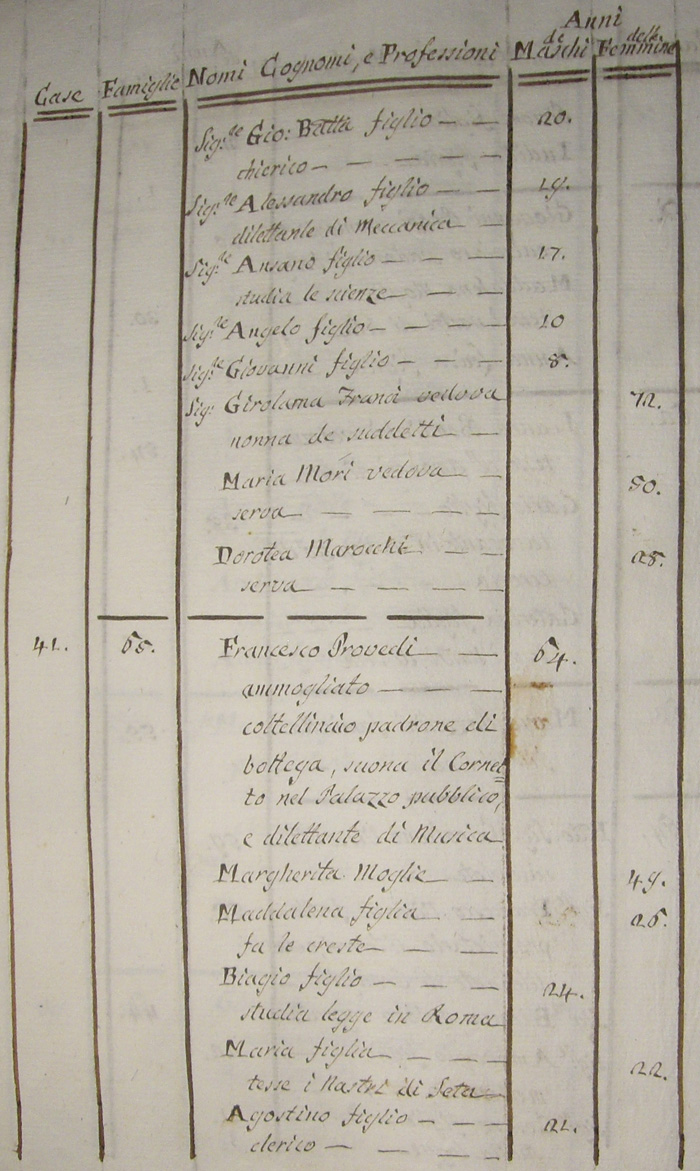 Anni
Case Famiglie Nomi Cognomi, e Professioni de Maschi delle Femmine
Sig:re Gio: Batta figlio — — 20.
chierico — — — — —
Sig:re Alessandro figlio — — 19.
dilettante di Meccanica —
Sig:re Ansano figlio — — — 17.
studia le scienze — — —
Sig:re Angelo figlio — — — 10
Sig:re Giovanni figlio — — — 8.
Sig: Girolama Franci vedova 72.
nonna de suddetti —
Maria Mori vedova — 50.
serva — — — — —
Dorotea Marocchi — — 28.
serva — — — — —
41. 65. Francesco Provedi — — 64.
ammogliato — — — —
coltellinaio padrone di
bottega, suona il Cornet=
to nel Palazzo pubblico,
e dilettante di Musica
Margherita Moglie — — 49.
Maddalena figlia — — 26.
fa le creste — — — —
Biagio figlio — — — — 24.
studia legge in Roma
Maria figlia — — — 22.
tesse i Nastri di Seta —
Agostino figlio — — — 21.
clerico — — — — —